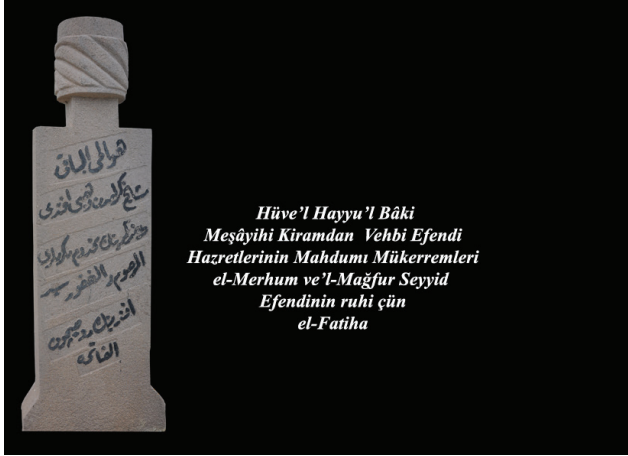 هو الحى الباقى
مشايخ كرامدن وهبى افندى
حضرتلرينك مخدوم مكرملرى
المرحوم والمغفور سيد
افندينك روحيچون
الفاتحه
Hüve’l Hayyu’l Bâki
Meşâyihi Kiramdan Vehbi Efendi
Hazretlerinin Mahdumı Mükerremleri
el-Merhum ve’l-Mağfur Seyyid
Efendinin ruhi çün
el-Fatiha